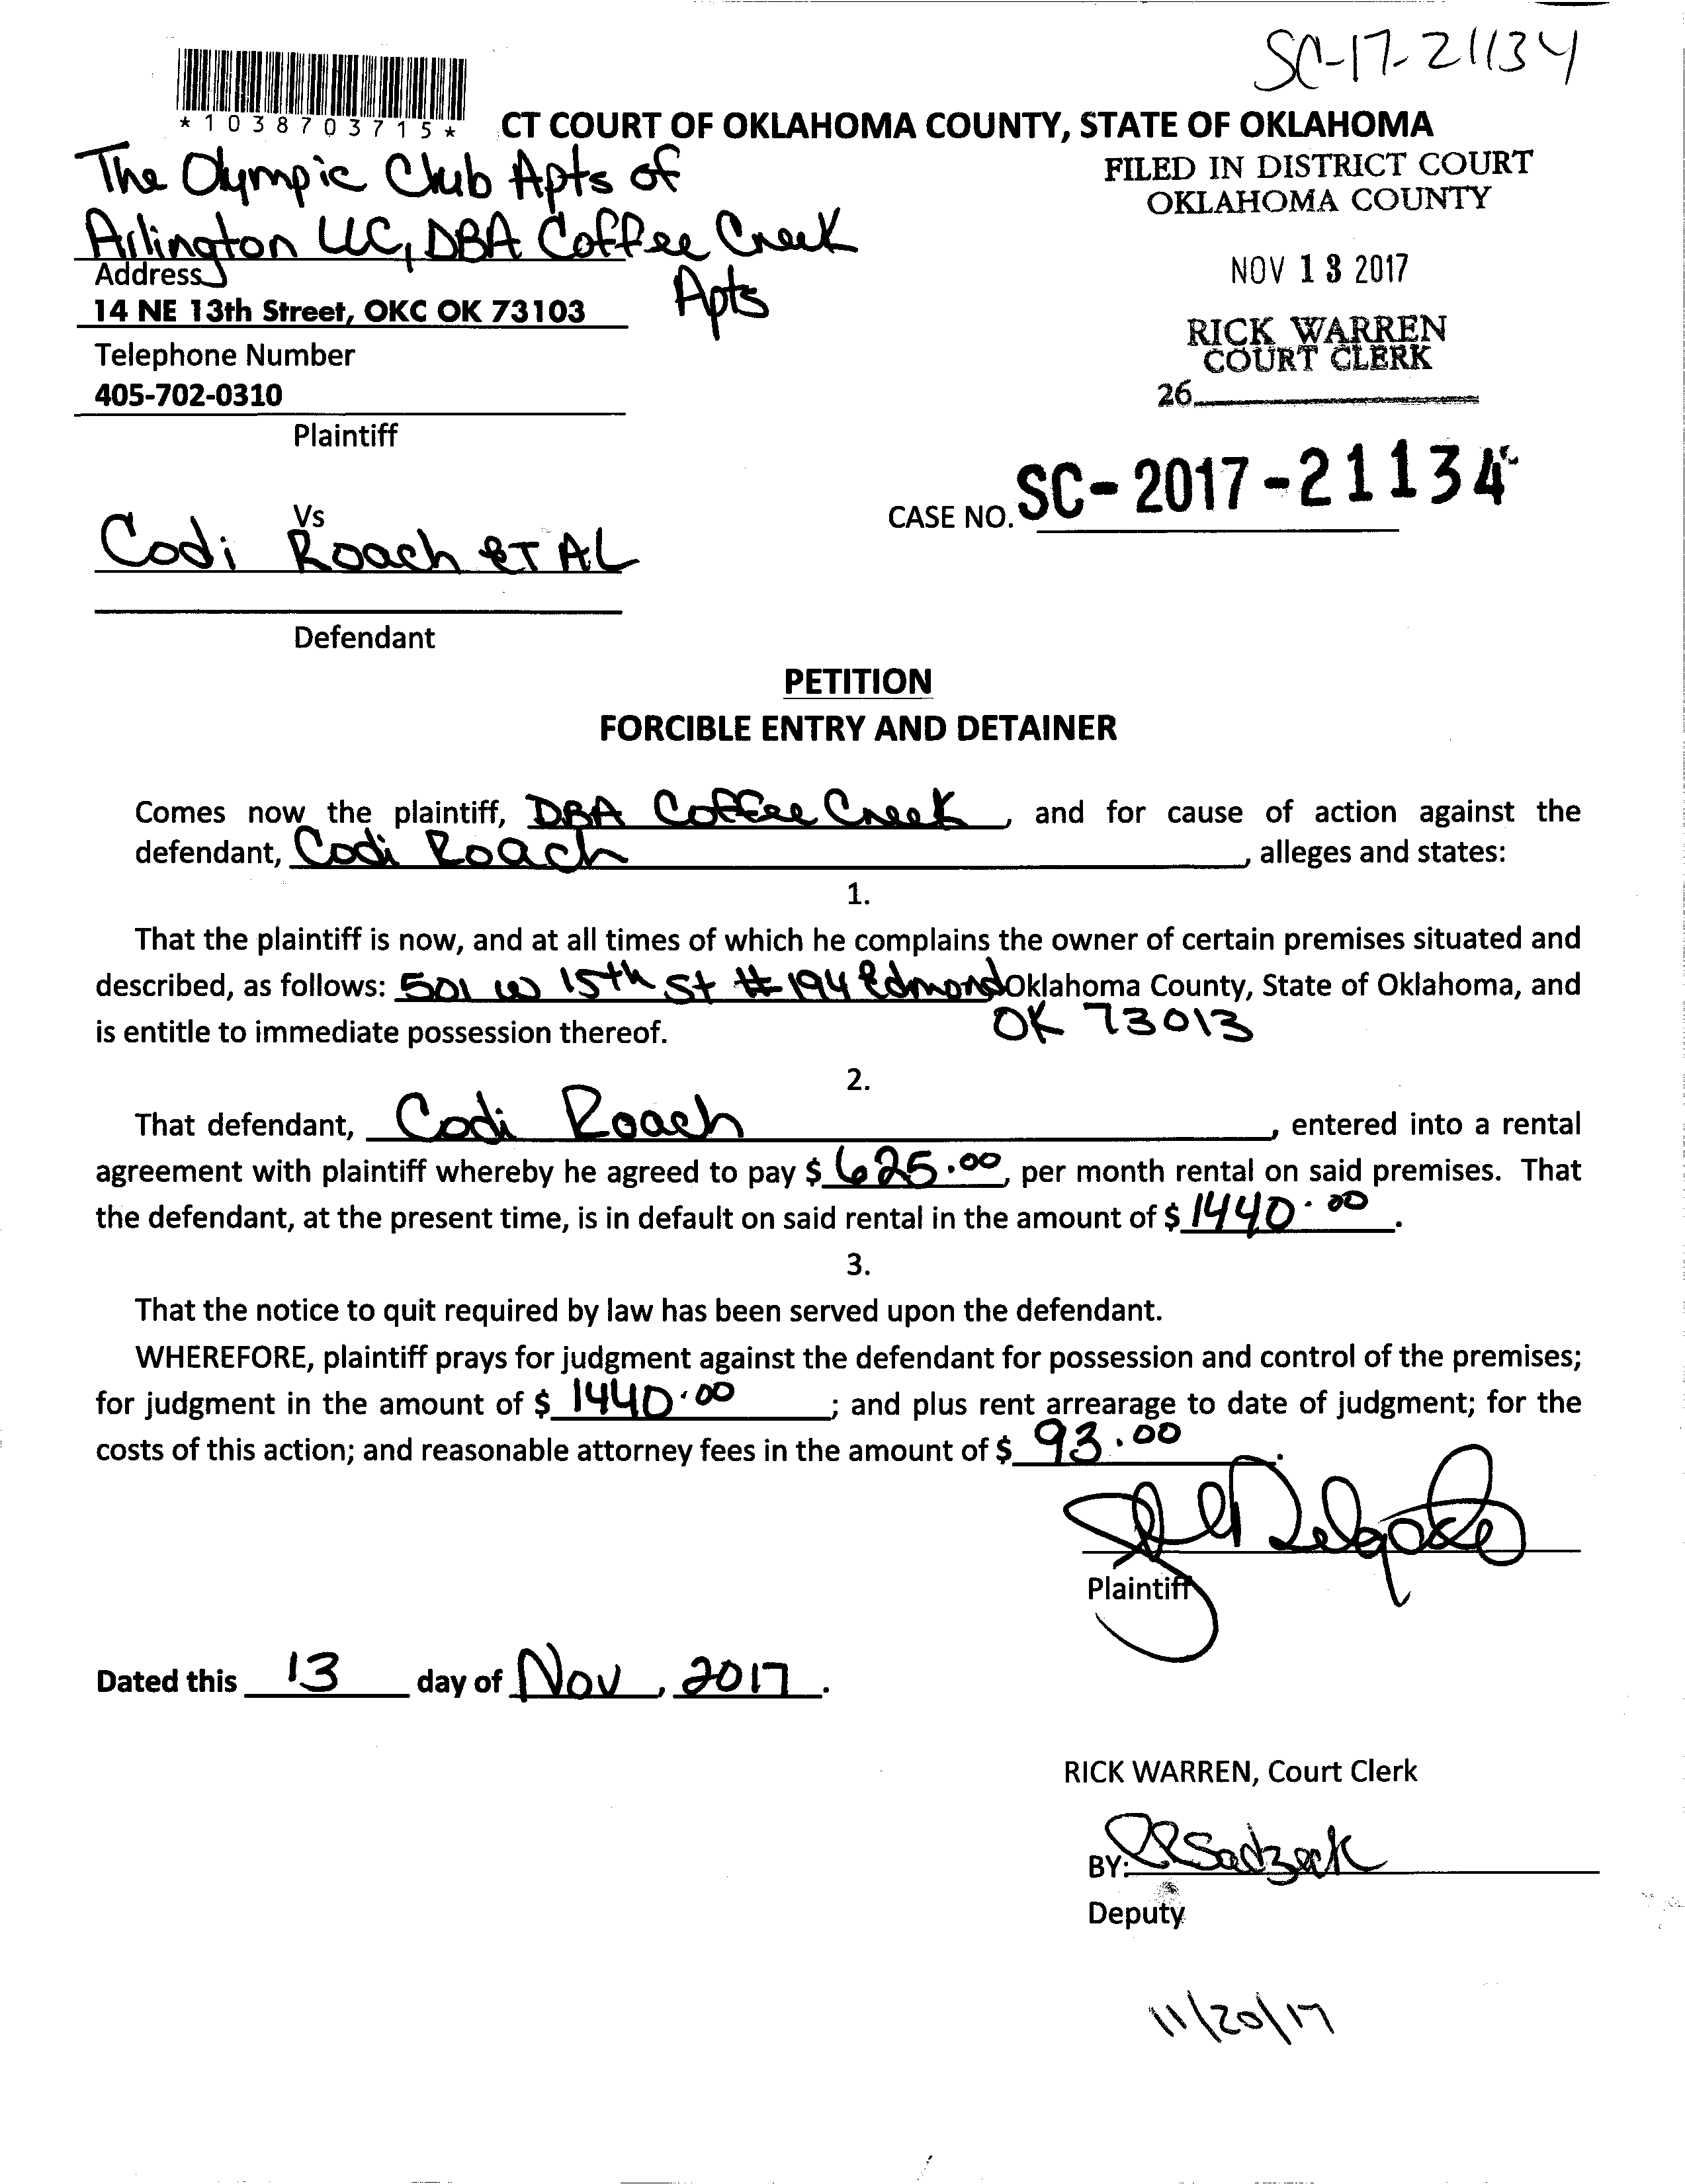 SC-17-21134
*1038703715*
CT COURT OF OKLAHOMA COUNTY, STATE OF OKLAHOMA
The Olympic Club Apts of
Arlington LLC, DBA Coffee Creek
Apts
Address
14 NE 13th Street, OKC OK 73103
Telephone Number
405-702-0310
Plaintiff
FILED IN DISTRICT COURT
OKLAHOMA COUNTY
NOV 13 2017
RICK WARREN
COURT CLERK
26
Vs
Codi Roach ET AL
Defendant
CASE NO. SC-2017-21134
PETITION
FORCIBLE ENTRY AND DETAINER
Comes now the plaintiff, DBA Coffee Creek, and for cause of action against the
defendant, Codi Roach, alleges and states:
1.
That the plaintiff is now, and at all times of which he complains the owner of certain premises situated and
described, as follows: 501 W 15th St # 194 Edmond Oklahoma County, State of Oklahoma, and
OK 73013
is entitle to immediate possession thereof.
2.
That defendant, Codi Roach, entered into a rental
agreement with plaintiff whereby he agreed to pay $ 625.00, per month rental on said premises. That
the defendant, at the present time, is in default on said rental in the amount of $ 1440.00.
3.
That the notice to quit required by law has been served upon the defendant.
WHEREFORE, plaintiff prays for judgment against the defendant for possession and control of the premises;
for judgment in the amount of $ 1440.00; and plus rent arrearage to date of judgment; for the
costs of this action; and reasonable attorney fees in the amount of $ 93.00.
Delgado
Plaintiff
Dated this 13 day of Nov, 2017.
RICK WARREN, Court Clerk
BY:
Deputy
11/20/17